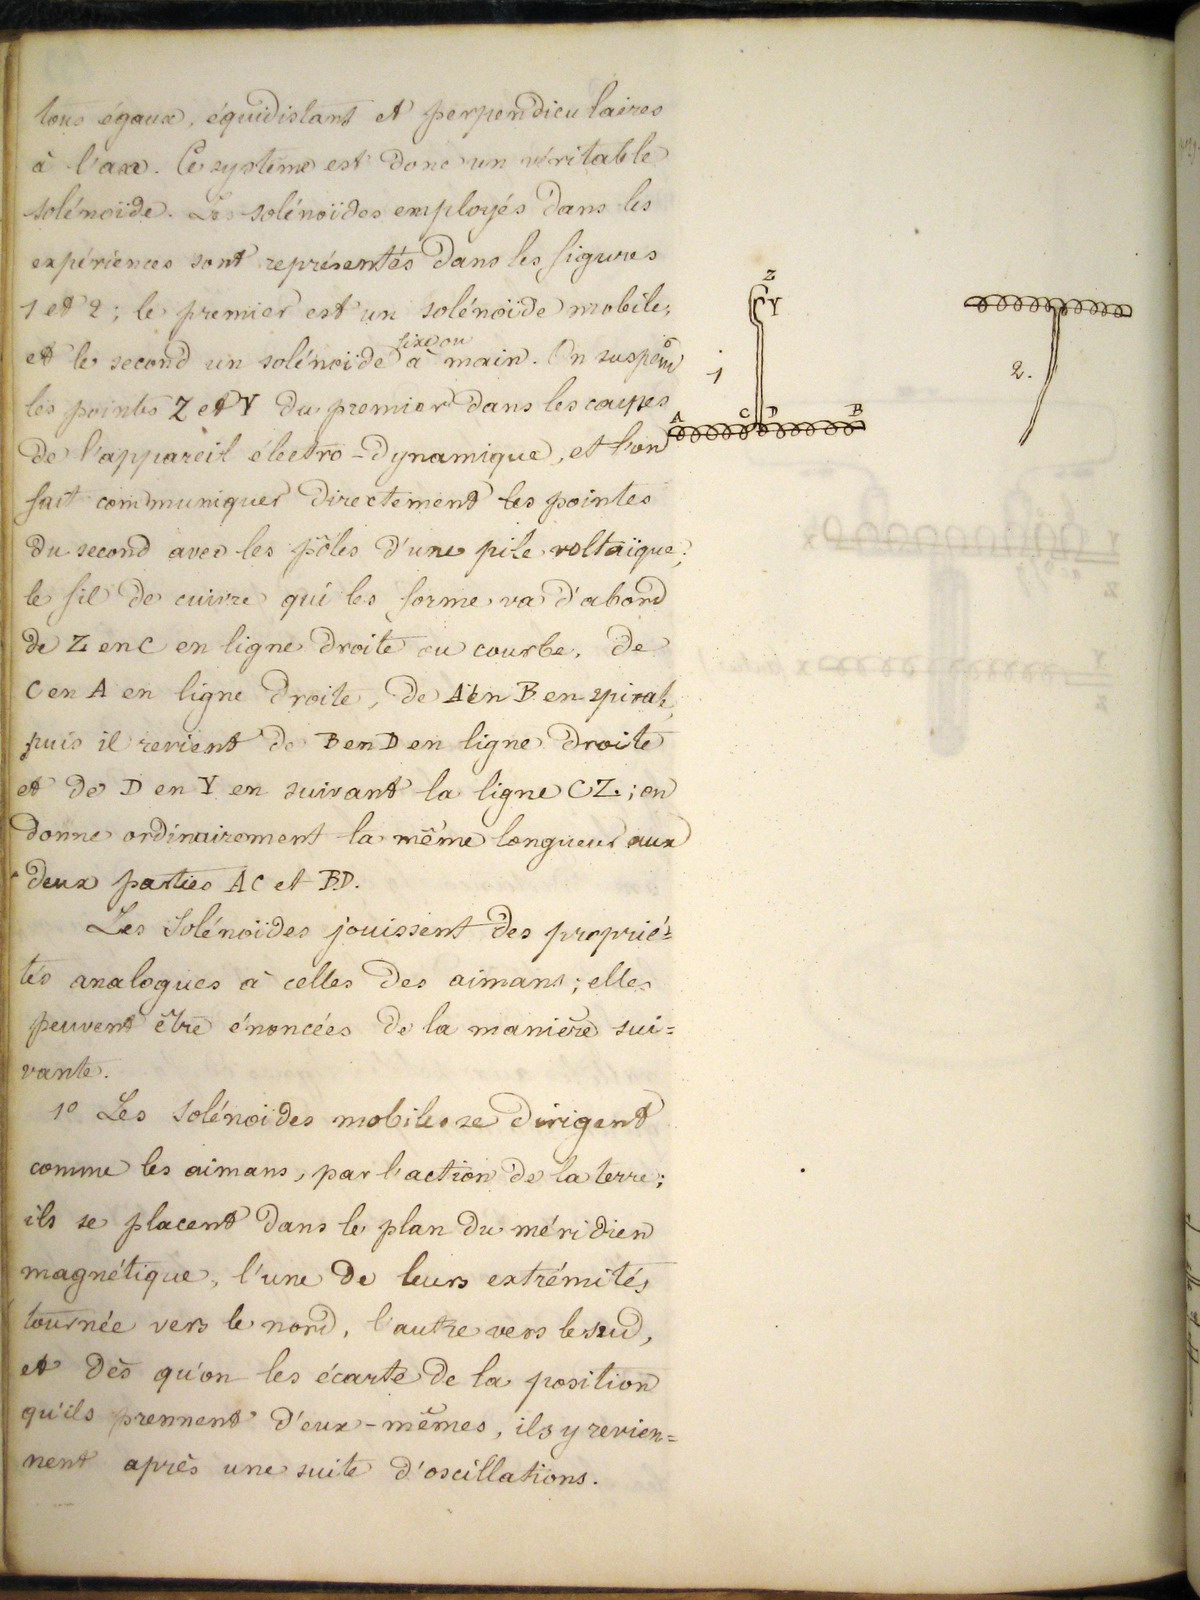 tous égaux, équidistant et perpendiculaires
à l'axe. Ce système est donc un véritable
solénoïde. Les solénoïdes employés dans les
expériences sont représentés dans les figures
1 et 2; le premier est un solénoïde mobile;
et le second un solénoïde fixe ou à main. On suspend
les pointes Z et Y du premier dans les coupes
de l'appareil électro-dynamique, et l'on
fait communiquer directement les pointes
du second avec les pôles d'une pile voltaïque;
le fil de cuivre qui les forme va d'abord
de Z en C en ligne droite ou courbe, de
C en A en ligne droite, de A en B en spiral,
puis il revient de B en D en ligne droite
et de D en Y en suivant la ligne CZ.; on
donne ordinairement la même longueur aux
deux parties AC et BD.
Les Solénoïdes jouissent des proprié=
tés analogues à celles des aimans; elles
peuvent être énoncées de la manière sui=
vante.
1º Les solénoïdes mobiles se dirigent
comme les aimans, par l'action de la terre;
ils se placent dans le plan du méridien
magnétique, l'une de leurs extrémités
tournée vers le nord, l'autre vers le sud,
et dès qu'on les écarte de la position
qu'ils prennent d'eux-mêmes, ils y revien=
nent après une suite d'oscillations.
Z
Y
1
A
C
D
B
2.